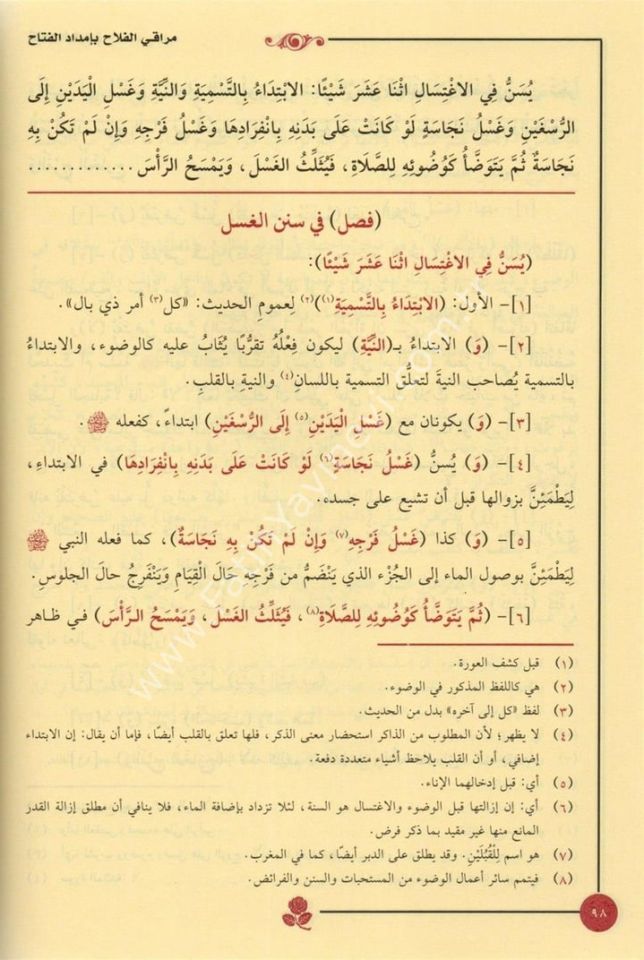 مراقي الفلاح بإمداد الفتاح
يُسَنُّ فِي الاغْتِسَالِ اثْنَا عَشَرَ شَيْئًا: الابْتِدَاءُ بِالتَّسْمِيَةِ وَالنِّيَّةِ وَغَسْلِ الْيَدَيْنِ إِلَى
الرُّسْغَيْنِ وَغَسْلُ نَجَاسَةٍ لَوْ كَانَتْ عَلَى بَدَنِهِ بِانْفِرَادِهَا وَغَسْلُ فَرْجِهِ وَإِنْ لَمْ تَكُنْ بِهِ
نَجَاسَةٌ ثُمَّ يَتَوَضَّأُ كَوُضُوئِهِ لِلصَّلَاةِ، فَيُثَلِّثُ الغَسْلَ، وَيَمْسَحُ الرَّأْسَ ............
(فصل) في سنن الغسل
(يُسَنُّ فِي الاغْتِسَالِ اثْنَا عَشَرَ شَيْئًا):
[١]- الأول: (الابْتِدَاءُ بِالتَّسْمِيَةِ(١))(٢) لعموم الحديث: «كل(٣) أمر ذي بال».
[٢]- (وَ) الابتداء بـ(النِّيَّةِ) ليكون فِعْلُهُ تقربًا يُثَابُ عليه كالوضوء، والابتداءُ
بالتسمية يُصاحب النيةَ لتعلُّق التسمية باللسانِ(٤) والنيةِ بالقلبِ.
[٣]- (وَ) يكونان مع (غَسْلِ الْيَدَيْنِ(٥) إِلَى الرُّسْغَيْنِ) ابتداءً، كفعله ﷺ.
[٤]- (وَ) يُسنُّ (غَسْلُ نَجَاسَةٍ(٦) لَوْ كَانَتْ عَلَى بَدَنِهِ بِانْفِرَادِهَا) في الابتداءِ،
لِيَطْمَئِنَّ بزوالها قبل أن تشيع على جسده.
[٥]- (وَ) كذا (غَسْلُ فَرْجِهِ(٧) وَإِنْ لَمْ تَكُنْ بِهِ نَجَاسَةٌ)، كما فعله النبي ﷺ
لِيَطْمَئِنَّ بوصول الماء إلى الجُزْء الذي يَنْضَمُّ من فرجِهِ حَالَ القِيَامِ وَيَنْفَرِجُ حالَ الجلوس.
[٦]- (ثُمَّ يَتَوَضَّأُ كَوُضُوئِهِ لِلصَّلَاةِ(٨)، فَيُثَلِّثُ الغَسْلَ، وَيَمْسَحُ الرَّأْسَ) في ظاهر
(١) قبل كشف العورة.
(٢) هي كاللفظ المذكور في الوضوء.
(٣) لفظ «كل إلى آخره» بدل من الحديث.
(٤) لا يظهر؛ لأن المطلوب من الذاكر استحضار معنى الذكر، فلها تعلق بالقلب أيضًا، فإما أن يقال: إن الابتداء
إضافي، أو أن القلب يلاحظ أشياء متعددة دفعة.
(٥) أي: قبل إدخالهما الإناء.
(٦) أي: إن إزالتها قبل الوضوء والاغتسال هو السنة، لئلا تزداد بإضافة الماء، فلا ينافي أن مطلق إزالة القدر
المانع منها غير مقيد بما ذكر فرض.
(٧) هو اسم لِلْقُبُلَيْنِ. وقد يطلق على الدبر أيضًا، كما في المغرب.
(٨) فيتمم سائر أعمال الوضوء من المستحبات والسنن والفرائض.
٩٨